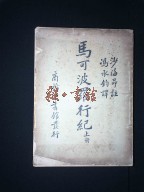 沙海昂註
馮承鈞譯
馬可波羅行紀上冊
商務印書館發行